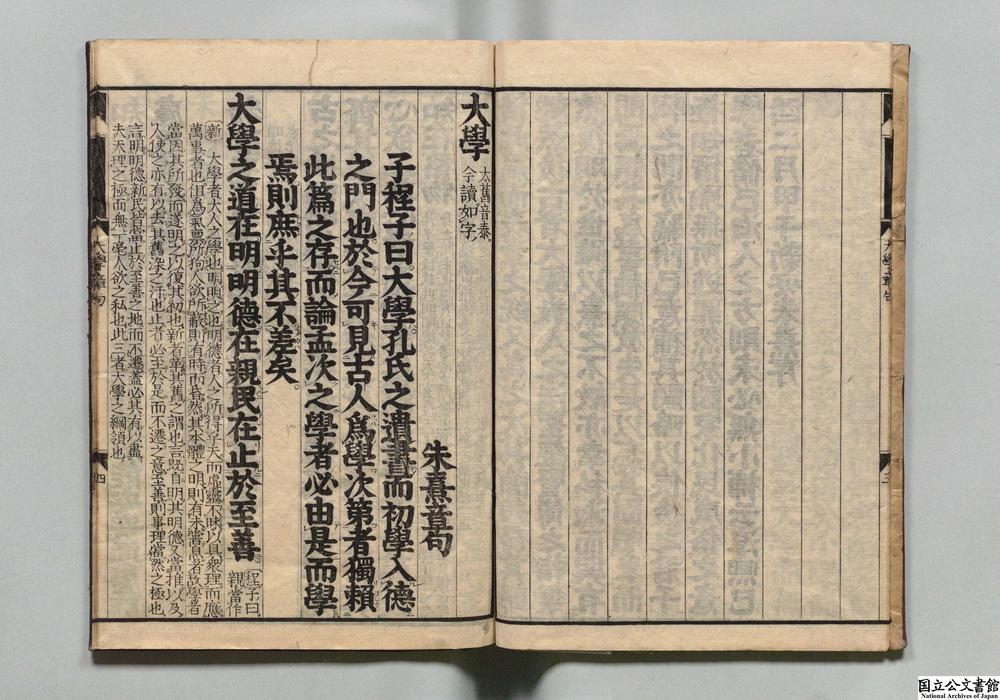 大學
大舊音泰
今讀如字
朱熹章句
子程子曰大學孔氏之遺書而初學入德
之門也於今可見古人爲學次第者獨賴
此篇之存而論孟次之學者必由是而學
焉則庶乎其不差矣
大學之道在明明德在親民在止於至善
程子曰
親當作
新 大學者大人之學也明明之也明德者人之所得乎天而虛靈不昧以具衆理而應
萬事者也但爲氣稟所拘人欲所蔽則有時而昏然其本體之明則有未嘗息者故學者
當因其所發而遂明之以復其初也新者革其舊之謂也言既自明其明德又當推以及
人使之亦有以去其舊染之汙也止者必至於是而不遷之意至善則事理當然之極也
言明明德新民皆當止於至善之地而不遷蓋必其有以盡
夫天理之極而無一毫人欲之私也此三者大學之綱領也
大學章句
四
大學章句
三
国立公文書館
National Archives of Japan